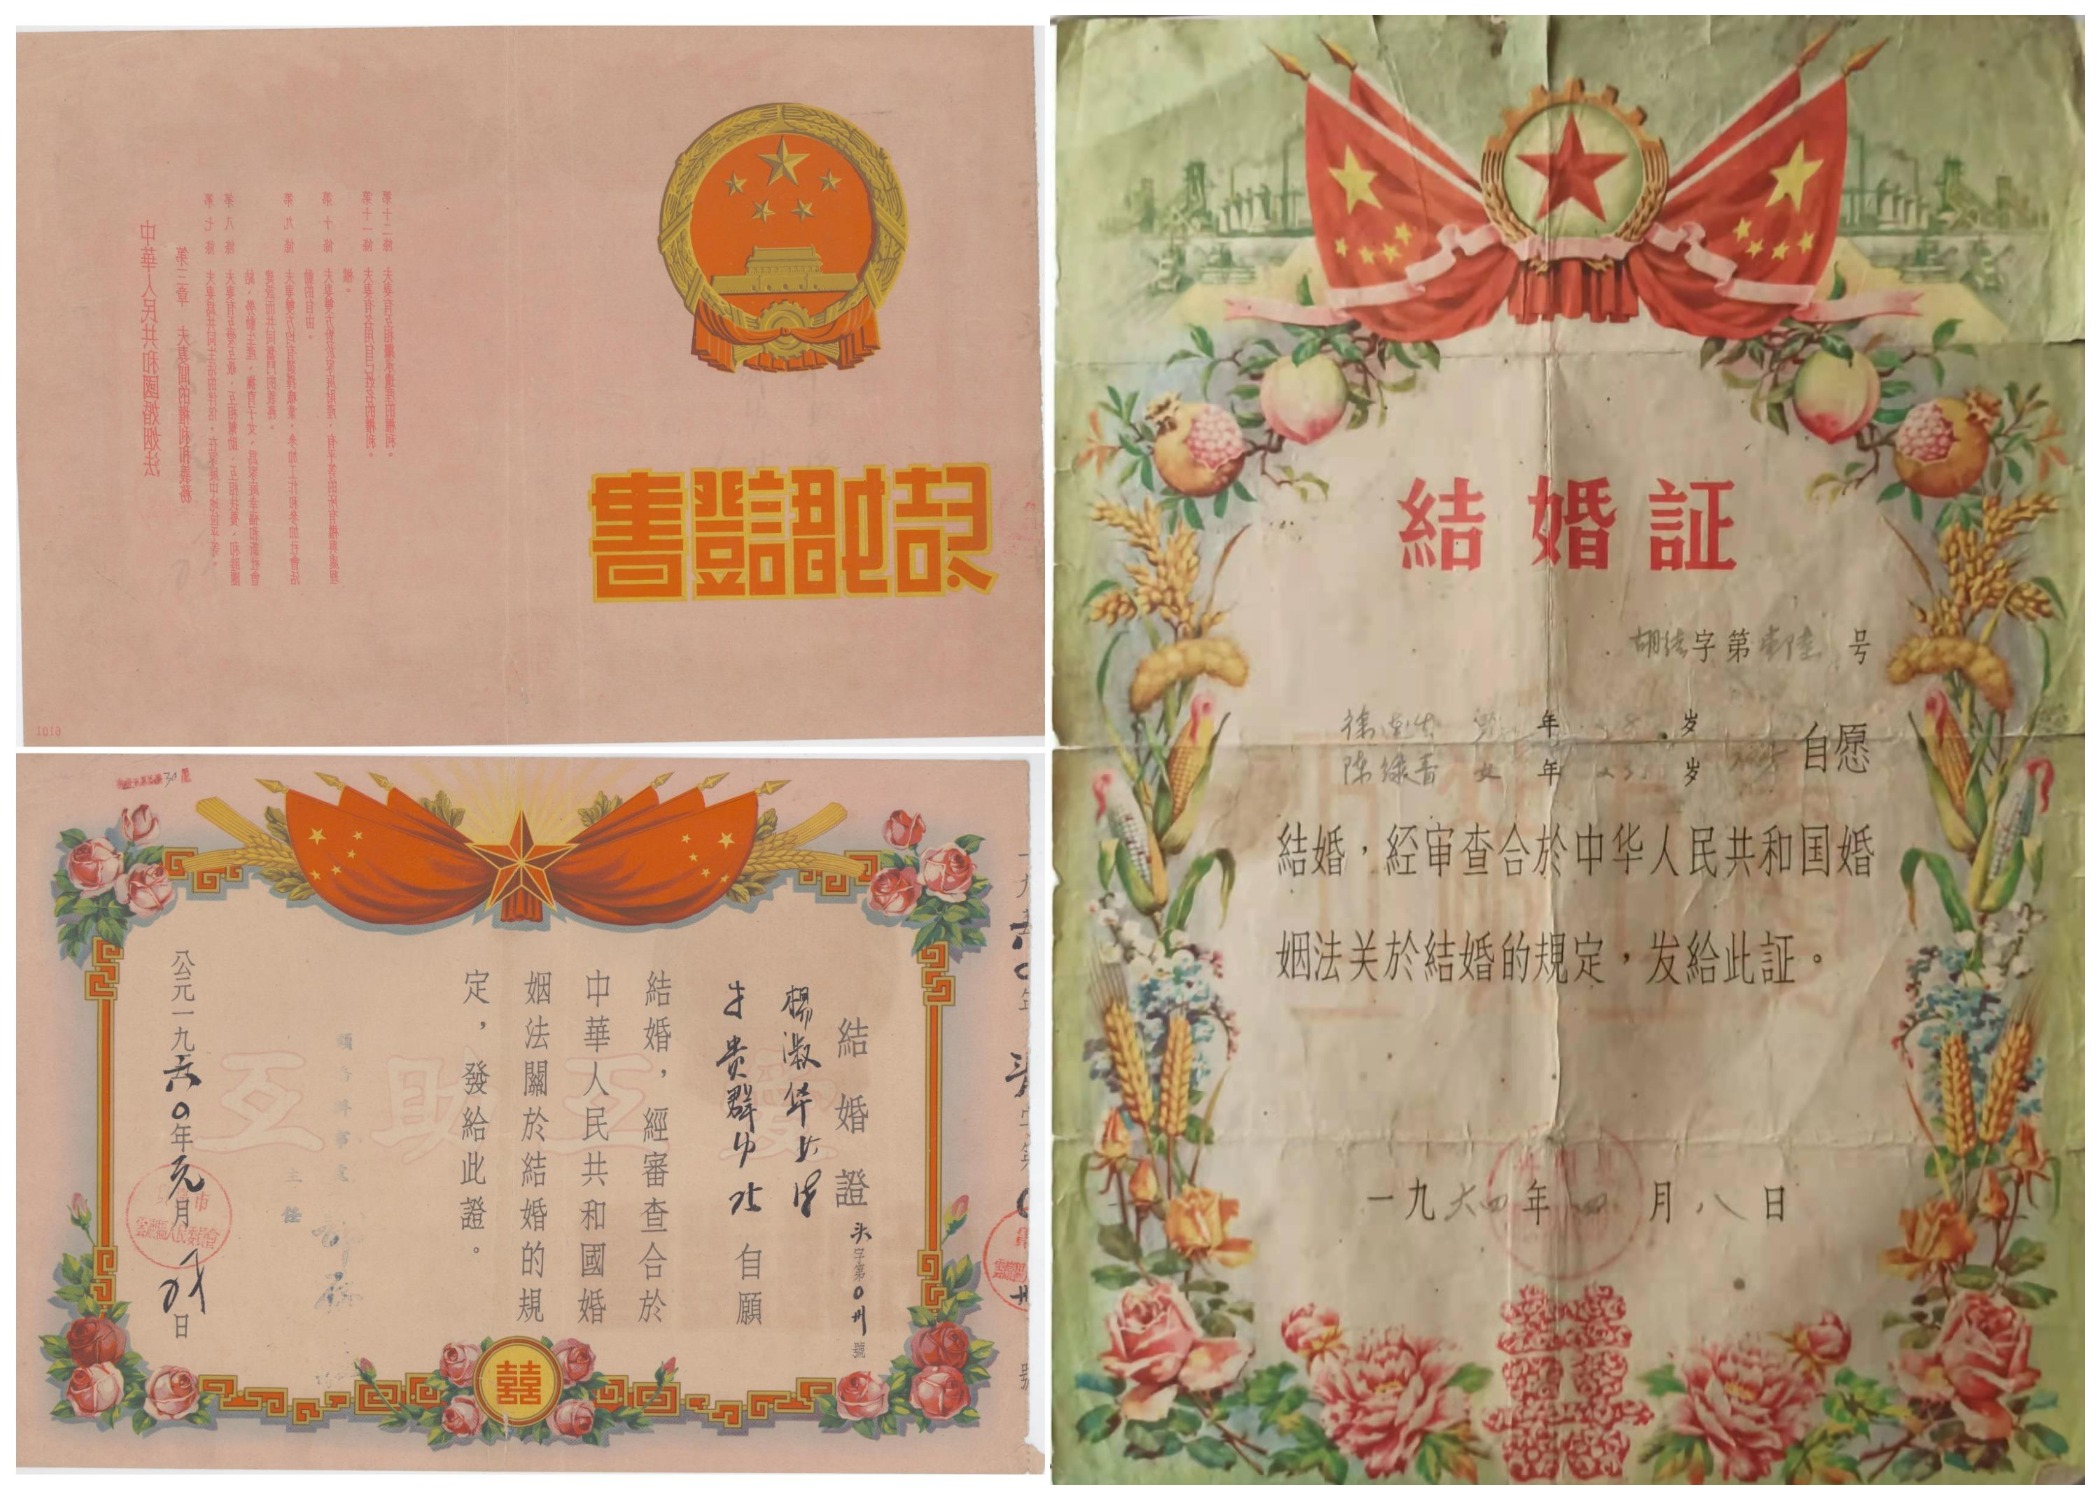 結婚證書
中華人民共和國婚姻法
第三章 夫妻間的權利和義務
第七條 夫妻爲共同生活的伴侶，在家庭中地位平等。
第八條 夫妻有互愛互敬、互相幫助、互相扶養、和睦團
結、勞動生產、撫育子女，爲家庭幸福和新社會
建設而共同奮鬥的義務。
第九條 夫妻雙方均有選擇職業、參加工作和參加社會活
動的自由。
第十條 夫妻雙方對於家庭財產，有平等的所有權與處理
權。
第十一條 夫妻有各用自己姓名的權利。
第十二條 夫妻有互相繼承遺產的權利。
結婚證
字第0卅號
楊淑华女
貴群
自願
結婚，經審查合於
中華人民共和國婚
姻法關於結婚的規
定，發給此證。
主任
公元一九六0年元月
日
互助互愛
結婚証
字第 号
年 岁
陈绿香 女 年 岁
自愿
結婚，経审查合於中华人民共和国婚
姻法关於結婚的規定，发給此証。
一九六四年四月八日